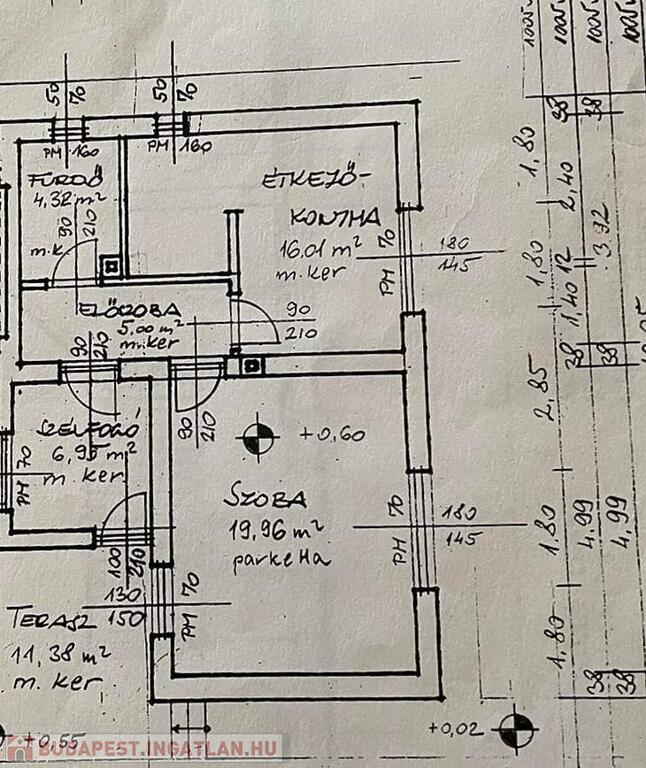 50 70
50 70
PM 160
PM 160
FÜRDŐ
4,32 m²
90 210
m.k.
ÉTKEZŐ-
KONYHA
16.01 m²
m.ker
PM 70
180
145
ELŐSZOBA
5,00 m²
m.ker
90
210
90 210
90 210
SZÉLFOGÓ
6,95 m²
m.ker
PM 70
+0,60
SZOBA
19,96 m²
parketta
PM 70
180
145
100 210
130
150
PM 70
TERASZ
11,38 m²
m.ker
+0,55
+0,02
1,80
1,80
2,85
1,80
1,80
38
2,40
12
1,40
38
4,99
38
38
3,92
38
4,99
38
BUDAPEST.INGATLAN.HU